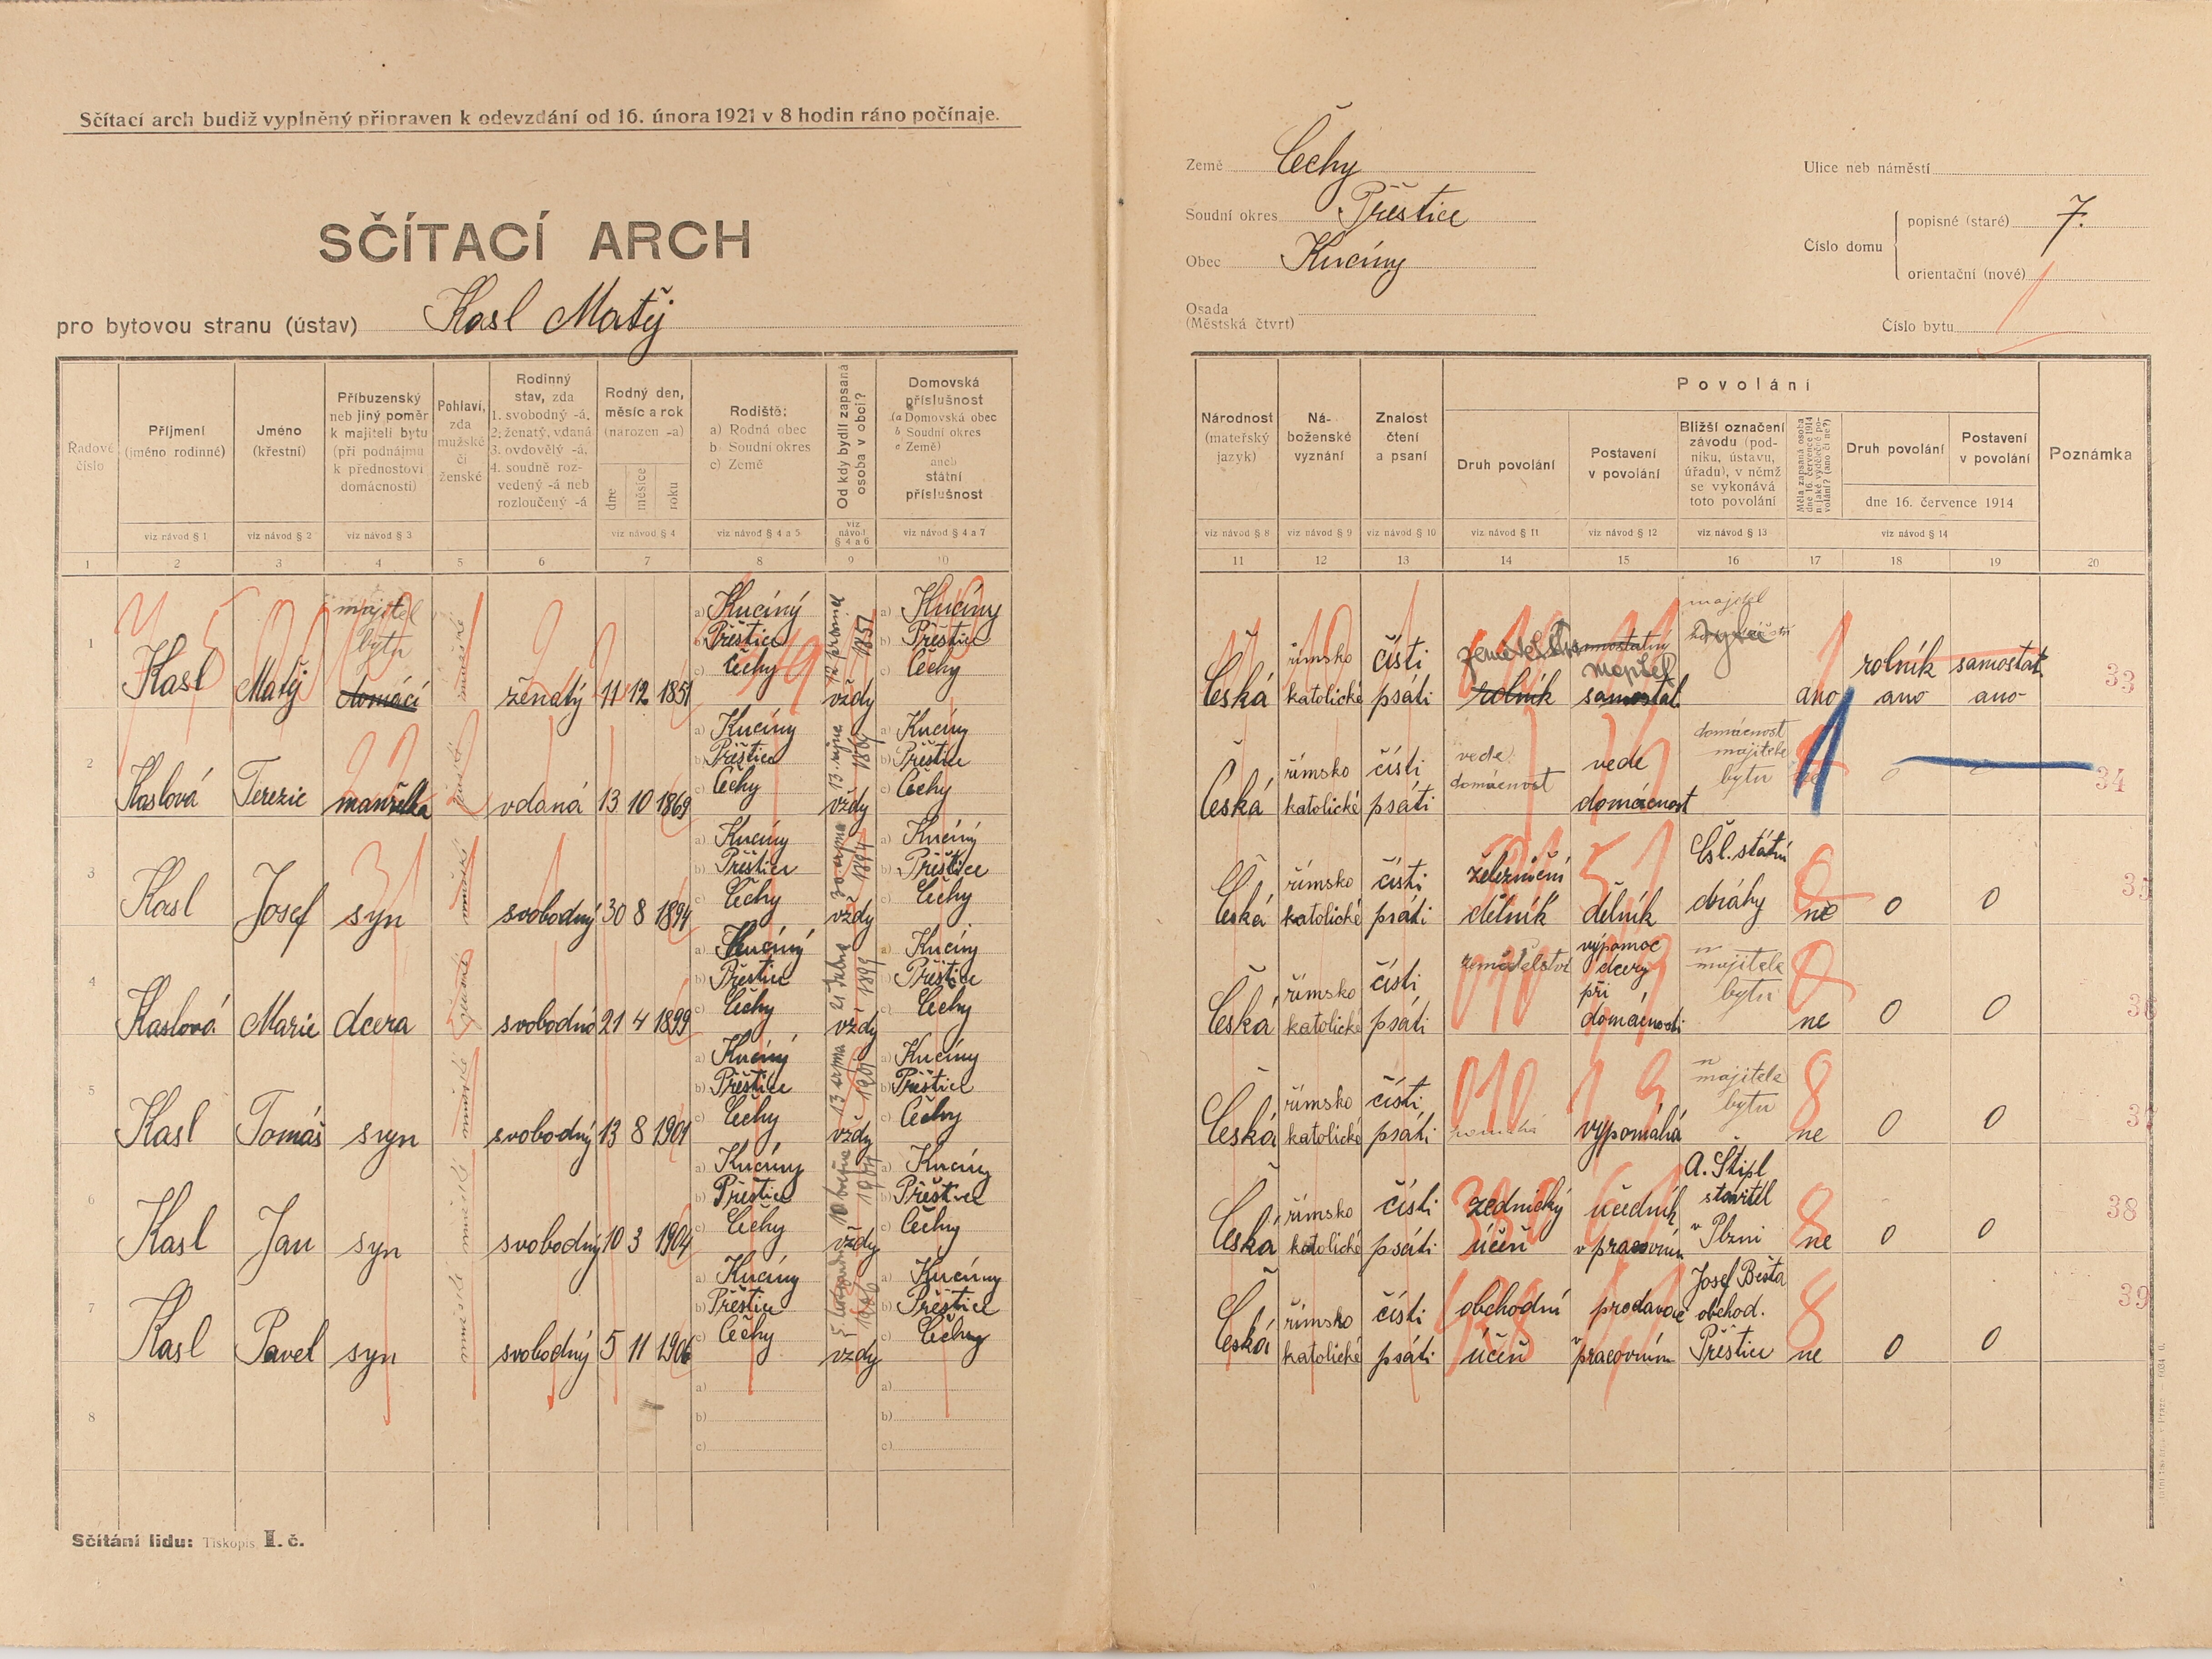 Sčítací arch budiž vyplněný připraven k odevzdání od 16. února 1921 v 8 hodin ráno počínaje.
SČÍTACÍ ARCH
pro bytovou stranu (ústav) Kasl Matěj
Země Čechy
Soudní okres Přeštice
Obec Kucíny
Osada
(Městská čtvrt)
Ulice neb náměstí
Číslo domu
popisné (staré) 7.
orientační (nové)
Číslo bytu 1
Řadové číslo
Příjmení (jméno rodinné)
Jméno (křestní)
Příbuzenský neb jiný poměr k majiteli bytu (při podnájmu k přednostovi domácnosti)
Pohlaví, zda mužské či ženské
Rodinný stav, zda 1. svobodný -á, 2. ženatý, vdaná 3. ovdovělý -á, 4. soudně rozvedený -á neb rozloučený -á
Rodný den, měsíc a rok (narozen -a)
dne měsíce roku
Rodiště: a) Rodná obec b Soudní okres c) Země
Od kdy bydlí zapsaná osoba v obci?
Domovská příslušnost (a Domovská obec b Soudní okres c Země) aneb státní příslušnost
Národnost (mateřský jazyk)
Náboženské vyznání
Znalost čtení a psaní
Povolání
Druh povolání
Postavení v povolání
Bližší označení závodu (podniku, ústavu, úřadu), v němž se vykonává toto povolání
Měla zapsaná osoba dne 16. července 1914 nějaké výdělečné povolání? (ano či ne?)
Druh povolání
Postavení v povolání
dne 16. července 1914
Poznámka
viz návod § 1 viz návod § 2 viz návod § 3 viz návod § 4 viz návod § 4 a 5 viz návod § 4 a 6 viz návod § 4 a 7
viz návod § 8 viz návod § 9 viz návod § 10 viz návod § 11 viz návod § 12 viz návod § 13 viz návod § 14
1 2 3 4 5 6 7 8 9 10
11 12 13 14 15 16 17 18 19 20
1 Kasl Matěj majitel bytu domácí mužské ženatý 11 12 1851 a) Kucíny b) Přeštice c) Čechy vždy a) Kucíny b) Přeštice c) Čechy
Česká římsko katolické čísti psáti rolník samostatný majitel samostat. majitel ano rolník ano samostat. ano 33
2 Kaslová Terezie manželka ženské vdaná 13 10 1869 a) Kucíny b) Přeštice c) Čechy 13. října 1869 vždy a) Kucíny b) Přeštice c) Čechy
Česká římsko katolické čísti psáti vede domácnost vede domácnost domácnost majitele bytu 1 34
3 Kasl Josef syn mužské svobodný 30 8 1894 a) Kucíny b) Přeštice c) Čechy 30 srpna 1894 vždy a) Kucíny b) Přeštice c) Čechy
Česká římsko katolické čísti psáti železniční dělník dělník Čsl. státní dráhy ne 0 0 35
4 Kaslová Marie dcera ženské svobodná 21 4 1899 a) Kucíny b) Přeštice c) Čechy 21 dubna 1899 vždy a) Kucíny b) Přeštice c) Čechy
Česká římsko katolické čísti psáti zemědělství výpomoc dcery při domácnosti majitele bytu ne 0 0 36
5 Kasl Tomáš syn mužské svobodný 13 8 1901 a) Kucíny b) Přeštice c) Čechy 13 srpna 1901 vždy a) Kucíny b) Přeštice c) Čechy
Česká římsko katolické čísti psáti pomáhá vypomáhá majitele bytu ne 0 0 37
6 Kasl Jan syn mužské svobodný 10 3 1904 a) Kucíny b) Přeštice c) Čechy 10 března 1904 vždy a) Kucíny b) Přeštice c) Čechy
Česká římsko katolické čísti psáti zednický učeň učedník v pracovním A. Štipl stavitel v Plzni ne 0 0 38
7 Kasl Pavel syn mužské svobodný 5 11 1906 a) Kucíny b) Přeštice c) Čechy 5 listopadu 1906 vždy a) Kucíny b) Přeštice c) Čechy
Česká římsko katolické čísti psáti obchodní učeň prodavač v pracovním Josef Bešta obchod. Přeštice ne 0 0 39
8 a) b) c) a) b) c)
Sčítání lidu: Tiskopis I. č.